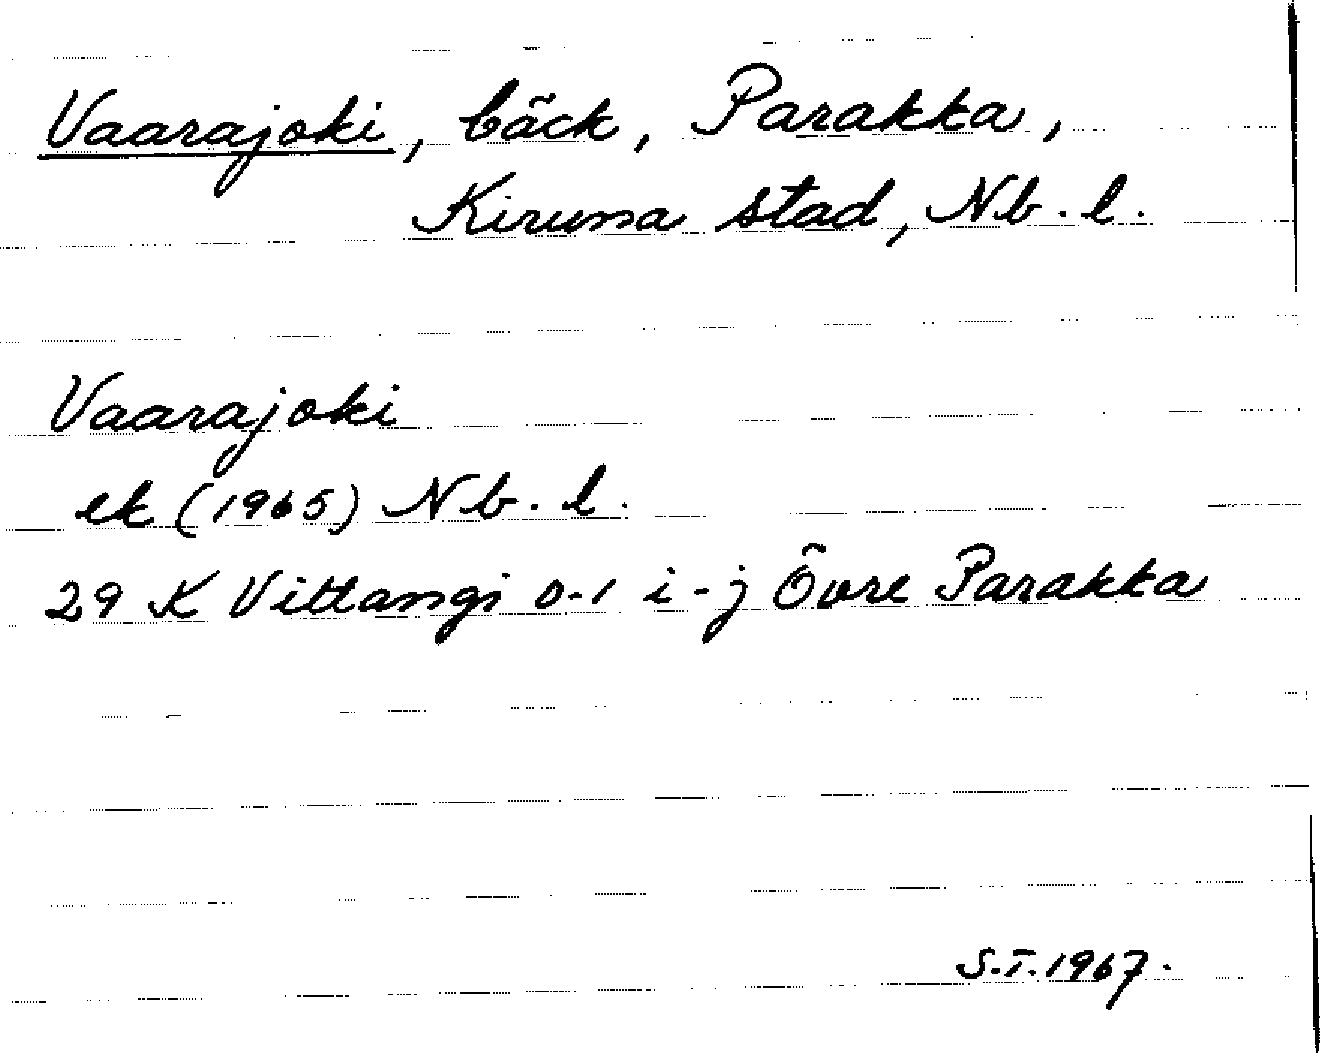 Vaarajoki, bäck, Parakka,
Kiruna stad, Nb. l.
Vaarajoki
ek (1965) Nb. l.
29 K Vittangi 0-1 i-j Övre Parakka
S.T. 1967.